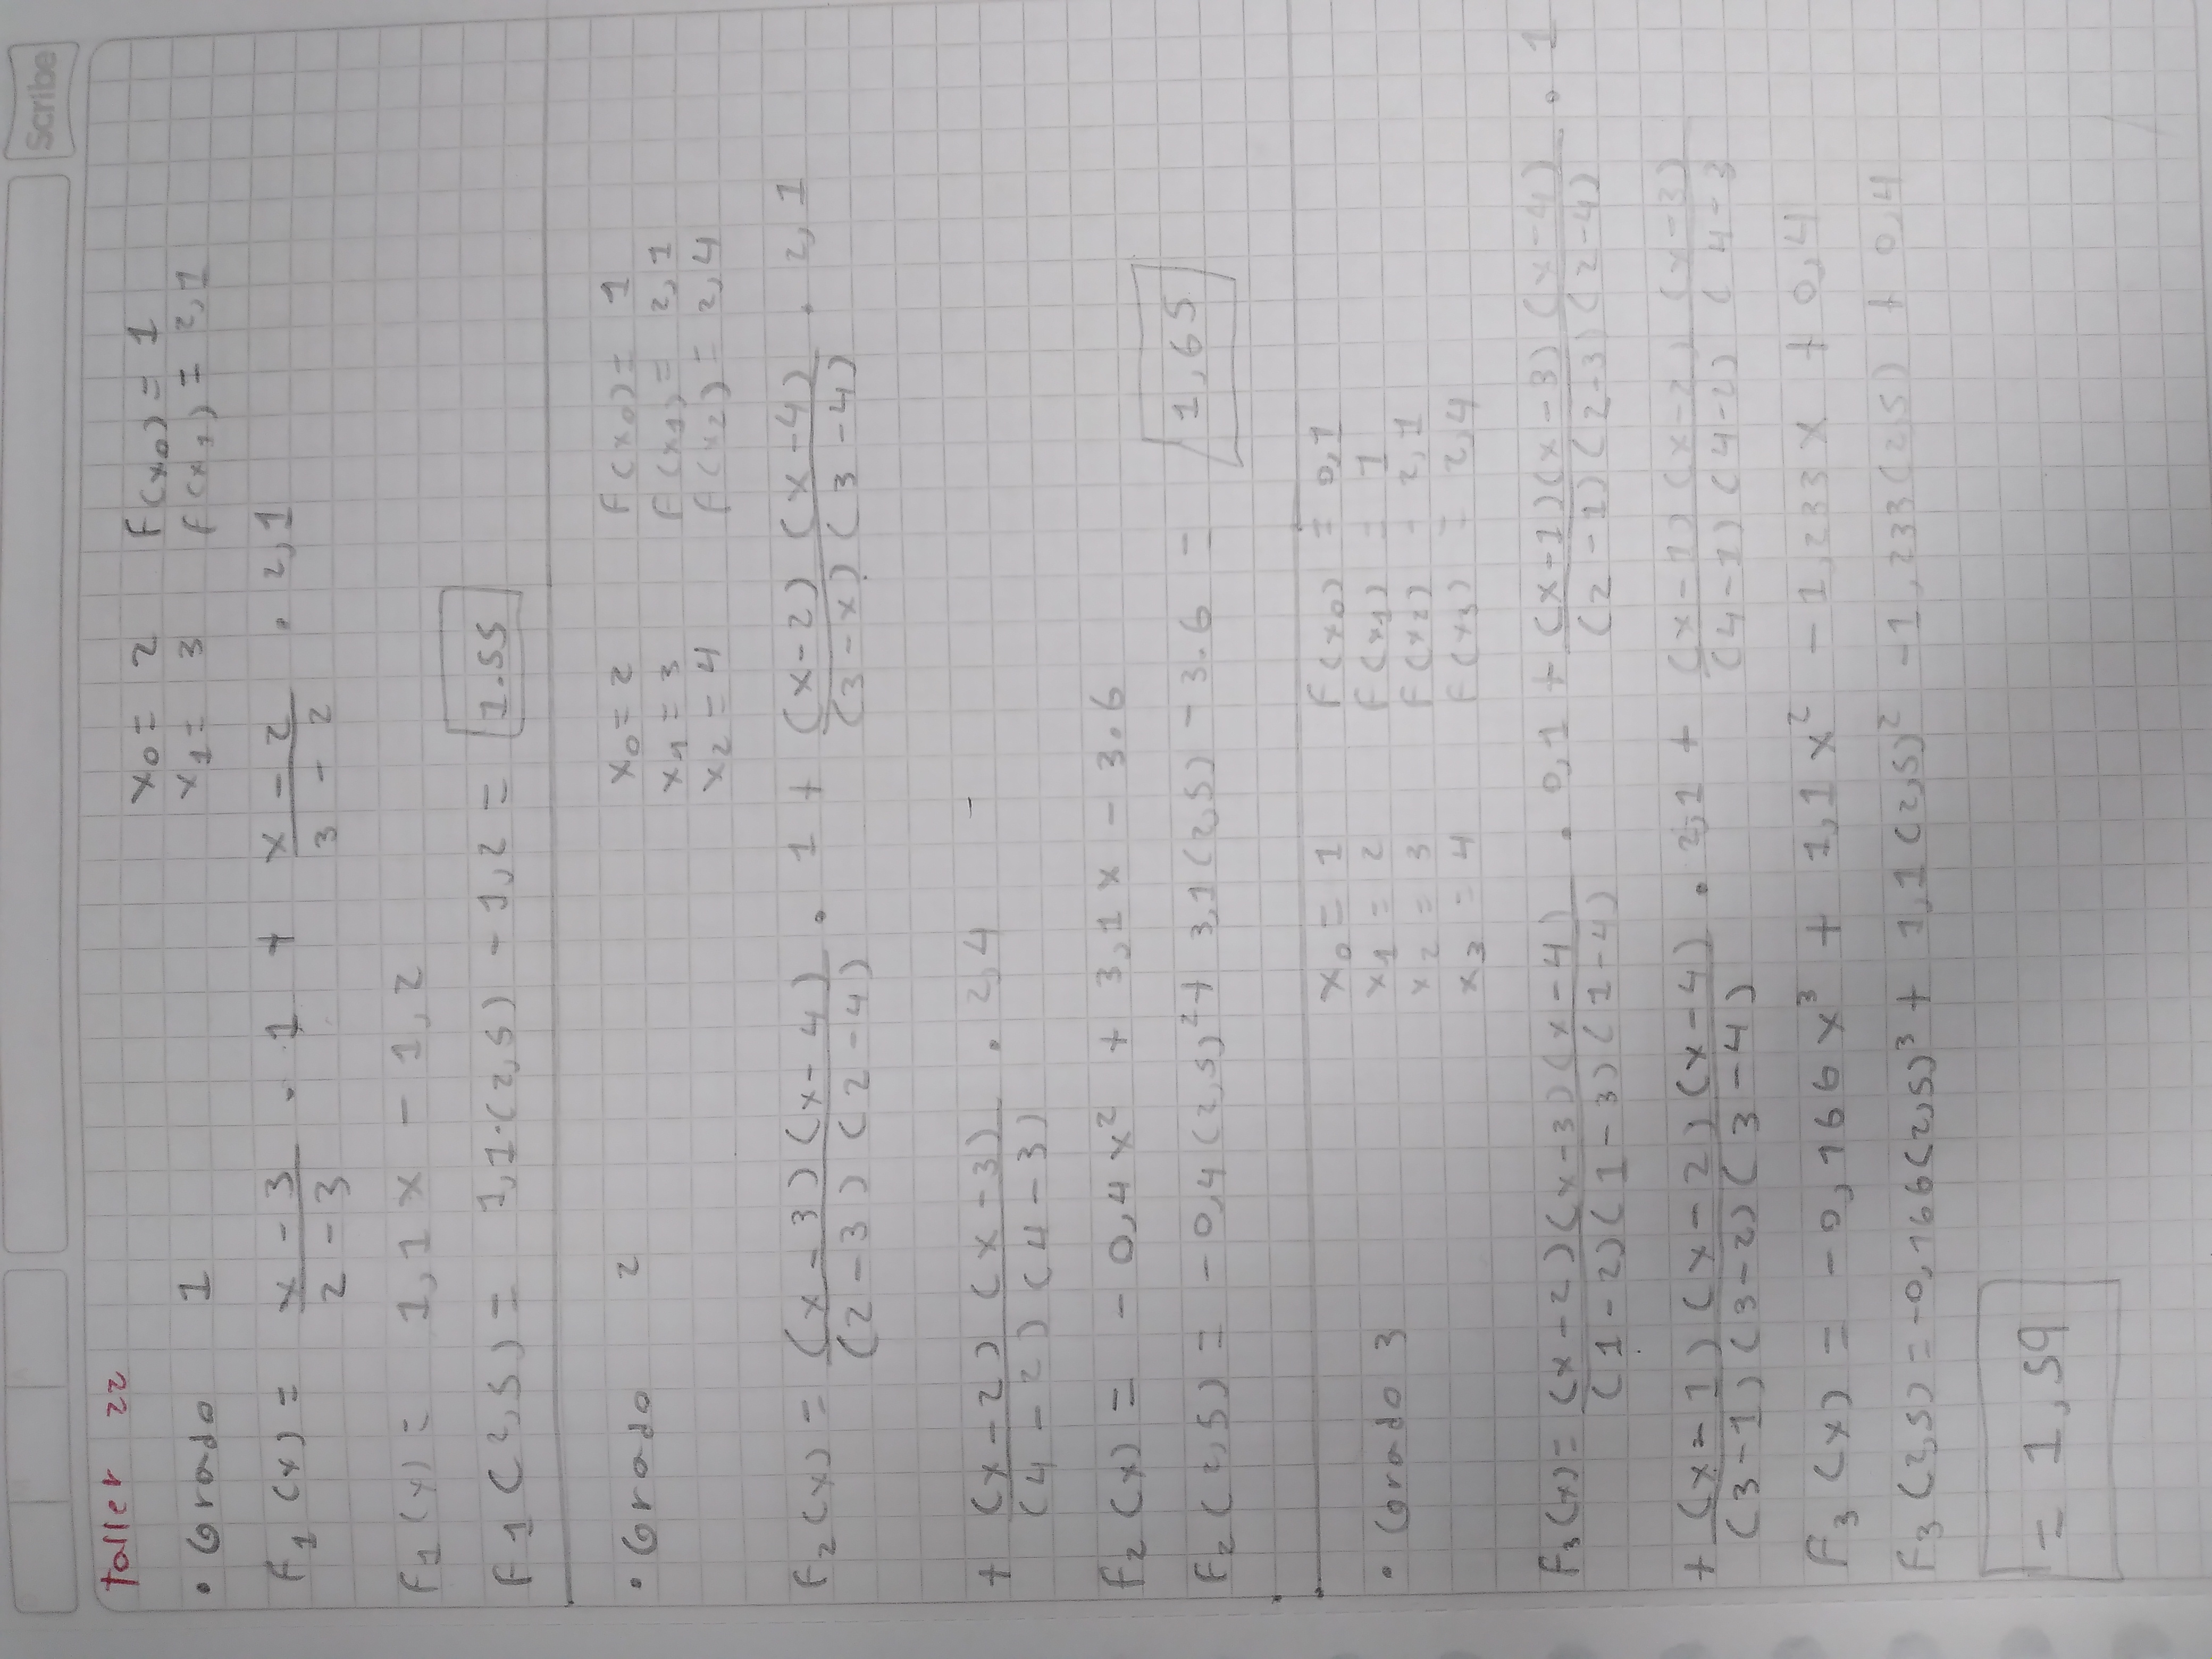 Scribe
Taller 22
x₀ = 2 F(x₀) = 1
• Grado 1 x₁ = 3 F(x₁) = 2,1
F₁(x) = (x - 3)/(2 - 3) · 1 + (x - 2)/(3 - 2) · 2,1
F₁(x) = 1,1x - 1,2
F1(2,5) = 1,1·(2,5) - 1,2 = 1.55
• Grado 2 x₀ = 2 F(x₀) = 1
x₁ = 3 F(x₁) = 2,1
x₂ = 4 F(x₂) = 2,4
F₂(x) = (x - 3)(x - 4)/(2 - 3)(2 - 4) · 1 + (x - 2)(x - 4)/(3 - x)(3 - 4) · 2,1
+ (x - 2)(x - 3)/(4 - 2)(4 - 3) · 2,4 -
F₂(x) = - 0,4x² + 3,1x - 3.6
F₂(2,5) = - 0,4(2,5)² + 3,1(2,5) - 3.6 = 1,65
x₀ = 1 F(x₀) = 0,1
• Grado 3 x₁ = 2 F(x₁) = 1
x₂ = 3 F(x₂) = 2,1
x₃ = 4 F(x₃) = 2,4
F₃(x) = (x - 2)(x - 3)(x - 4)/(1 - 2)(1 - 3)(1 - 4) · 0,1 + (x - 1)(x - 3)(x - 4)/(2 - 1)(2 - 3)(2 - 4) · 1
+ (x - 1)(x - 2)(x - 4)/(3 - 1)(3 - 2)(3 - 4) · 2,1 + (x - 1)(x - 2)(x - 3)/(4 - 1)(4 - 2)(4 - 3
F₃(x) = -0,166x³ + 1,1x² - 1,233x + 0,4
F₃(2,5) = -0,166(2,5)³ + 1,1(2,5)² - 1,233(2,5) + 0,4
= 1,59